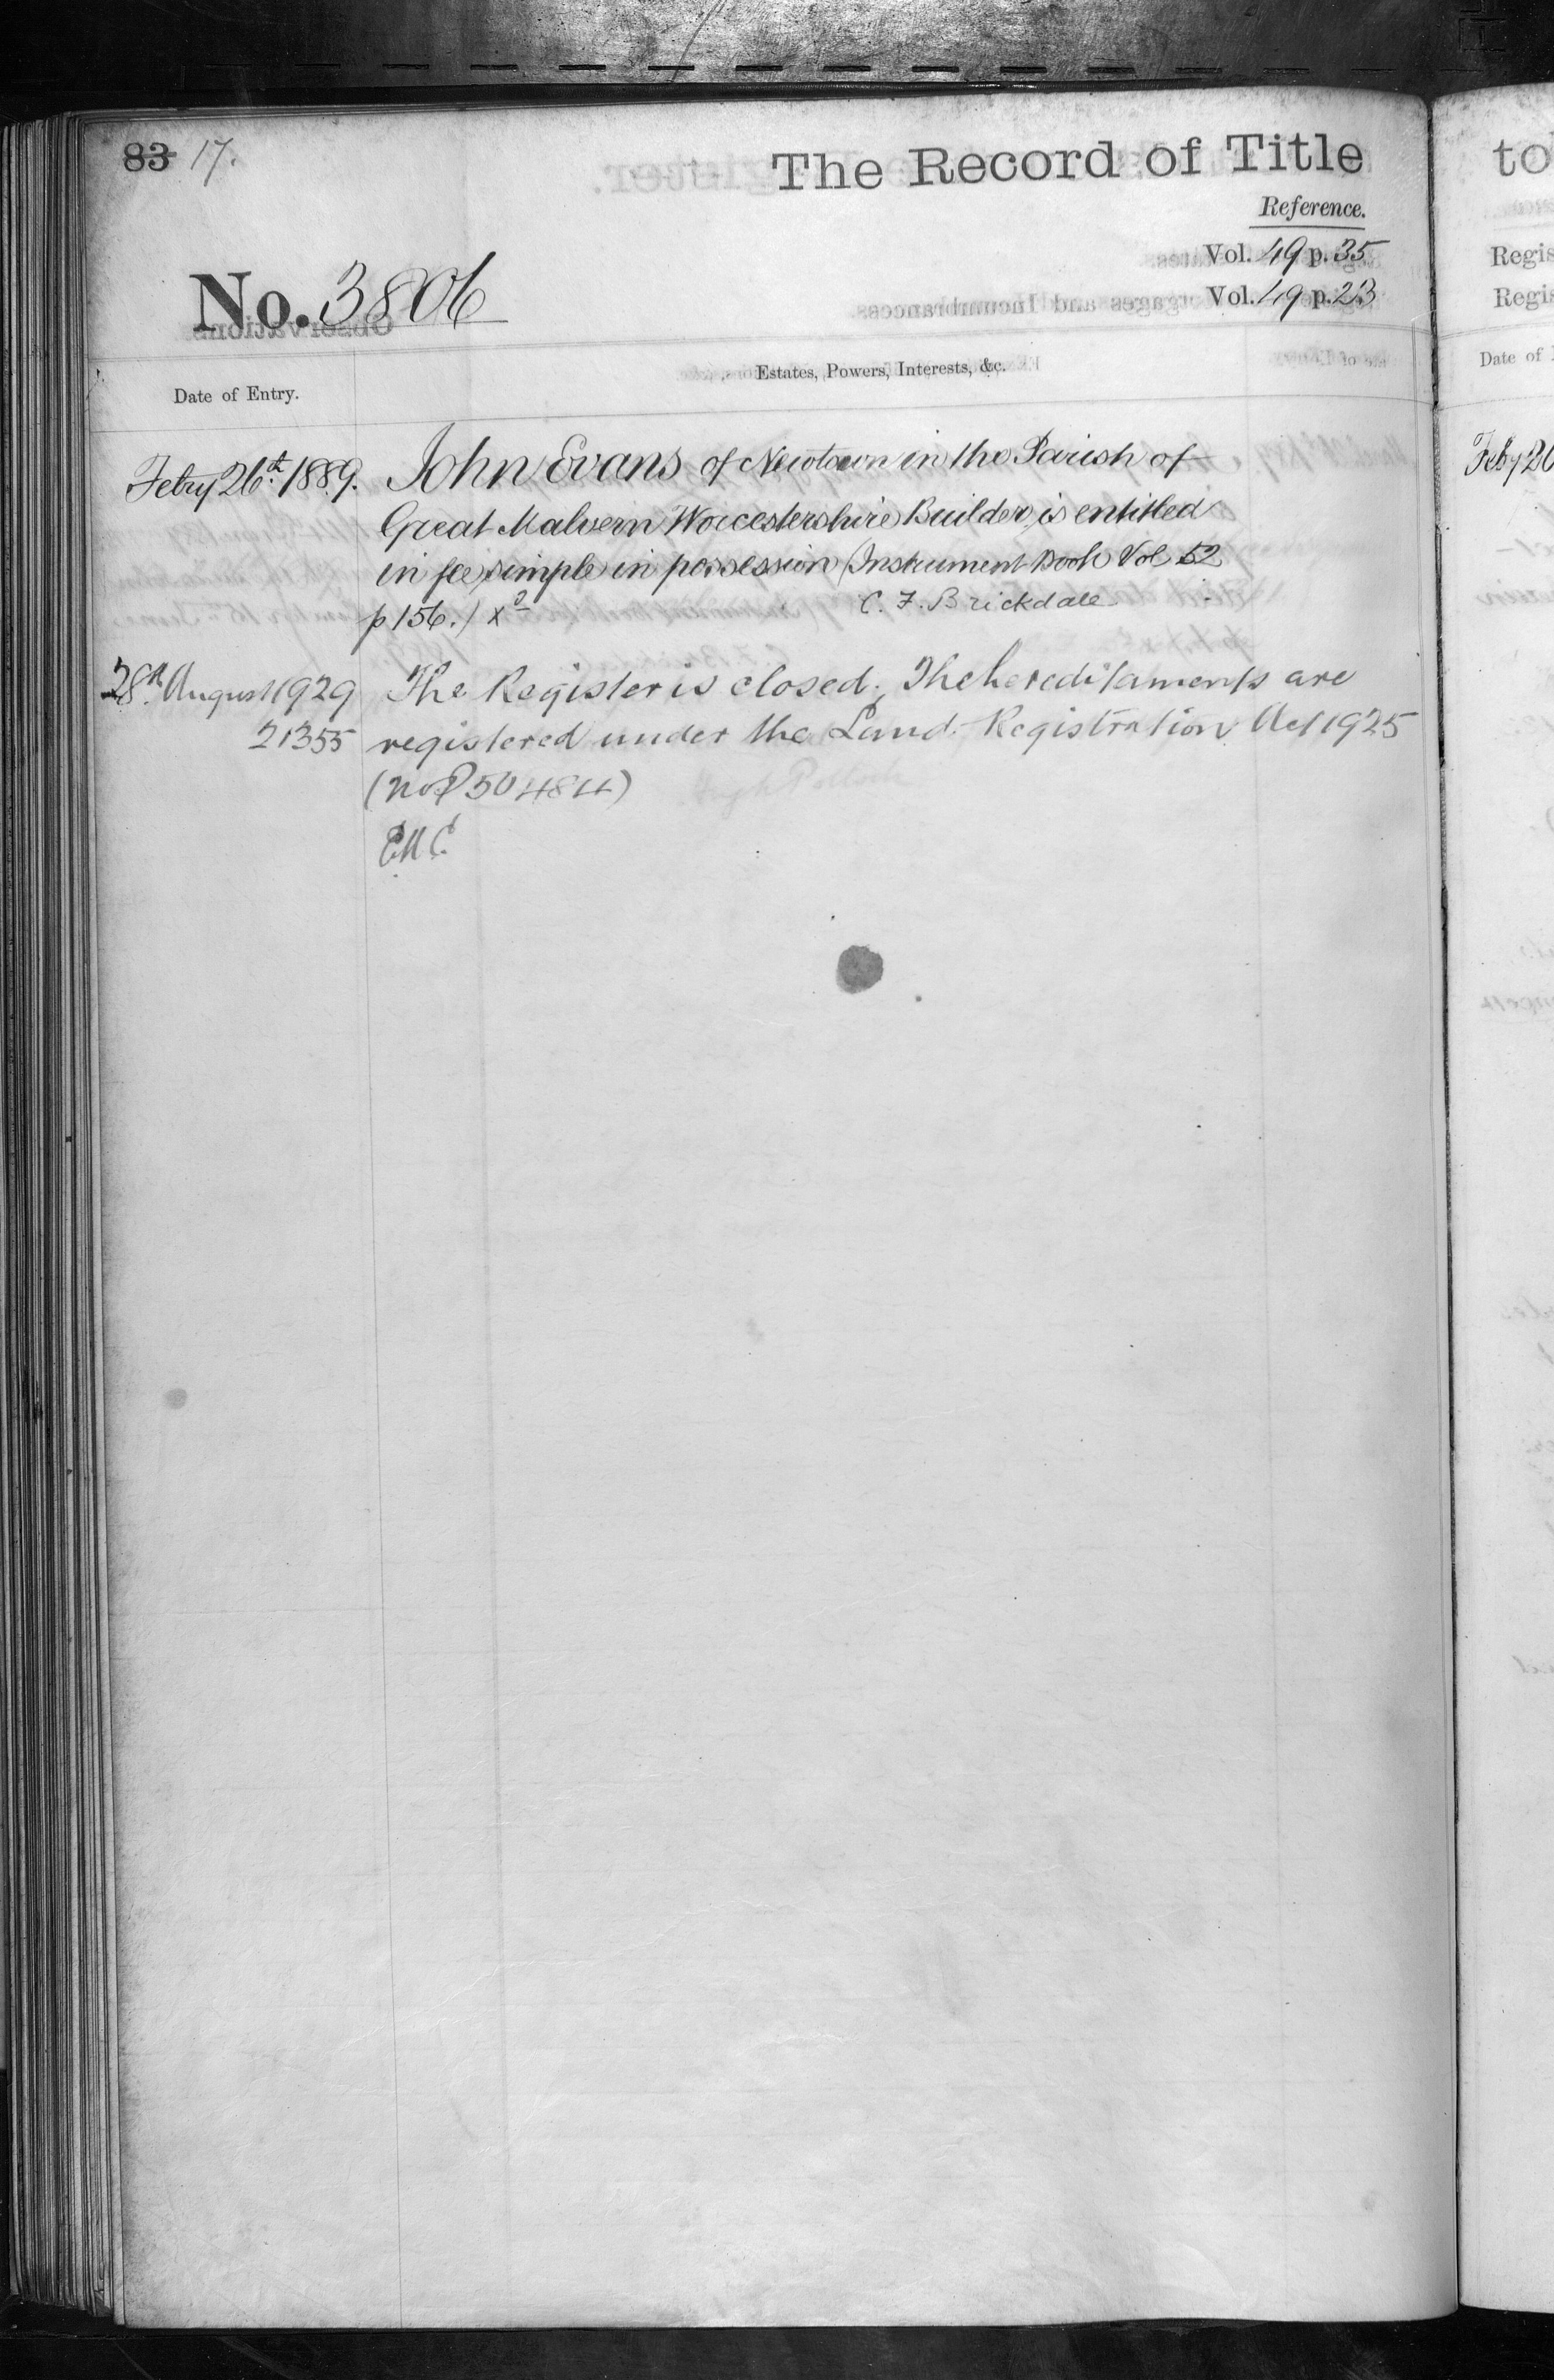 83 17.
The Record of Title
Reference.
Vol. 49 p. 35
Vol. 49 p. 23
No. 3806
Date of Entry.
Estates, Powers, Interests, &c.
Febry 26th 1889. John Evans of Newtown in the Parish of
Great Malvern Worcestershire Builder, is entitled
in fee simple in possession (Instrument Book Vol 52
p 156.)
C. F. Brickdale
28th August 1929 The Register is closed. The hereditaments are
21355 registered under the Land Registration Act 1925
(No P 50484) Hugh Pollock
to
Regis
Regis
Date of
Feby 26